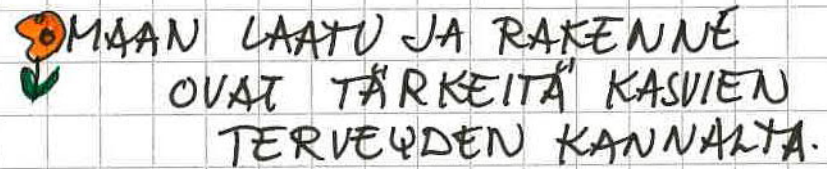 MAAN LAATU JA RAKENNE
OVAT TÄRKEITÄ KASVIEN
TERVEYDEN KANNALTA.